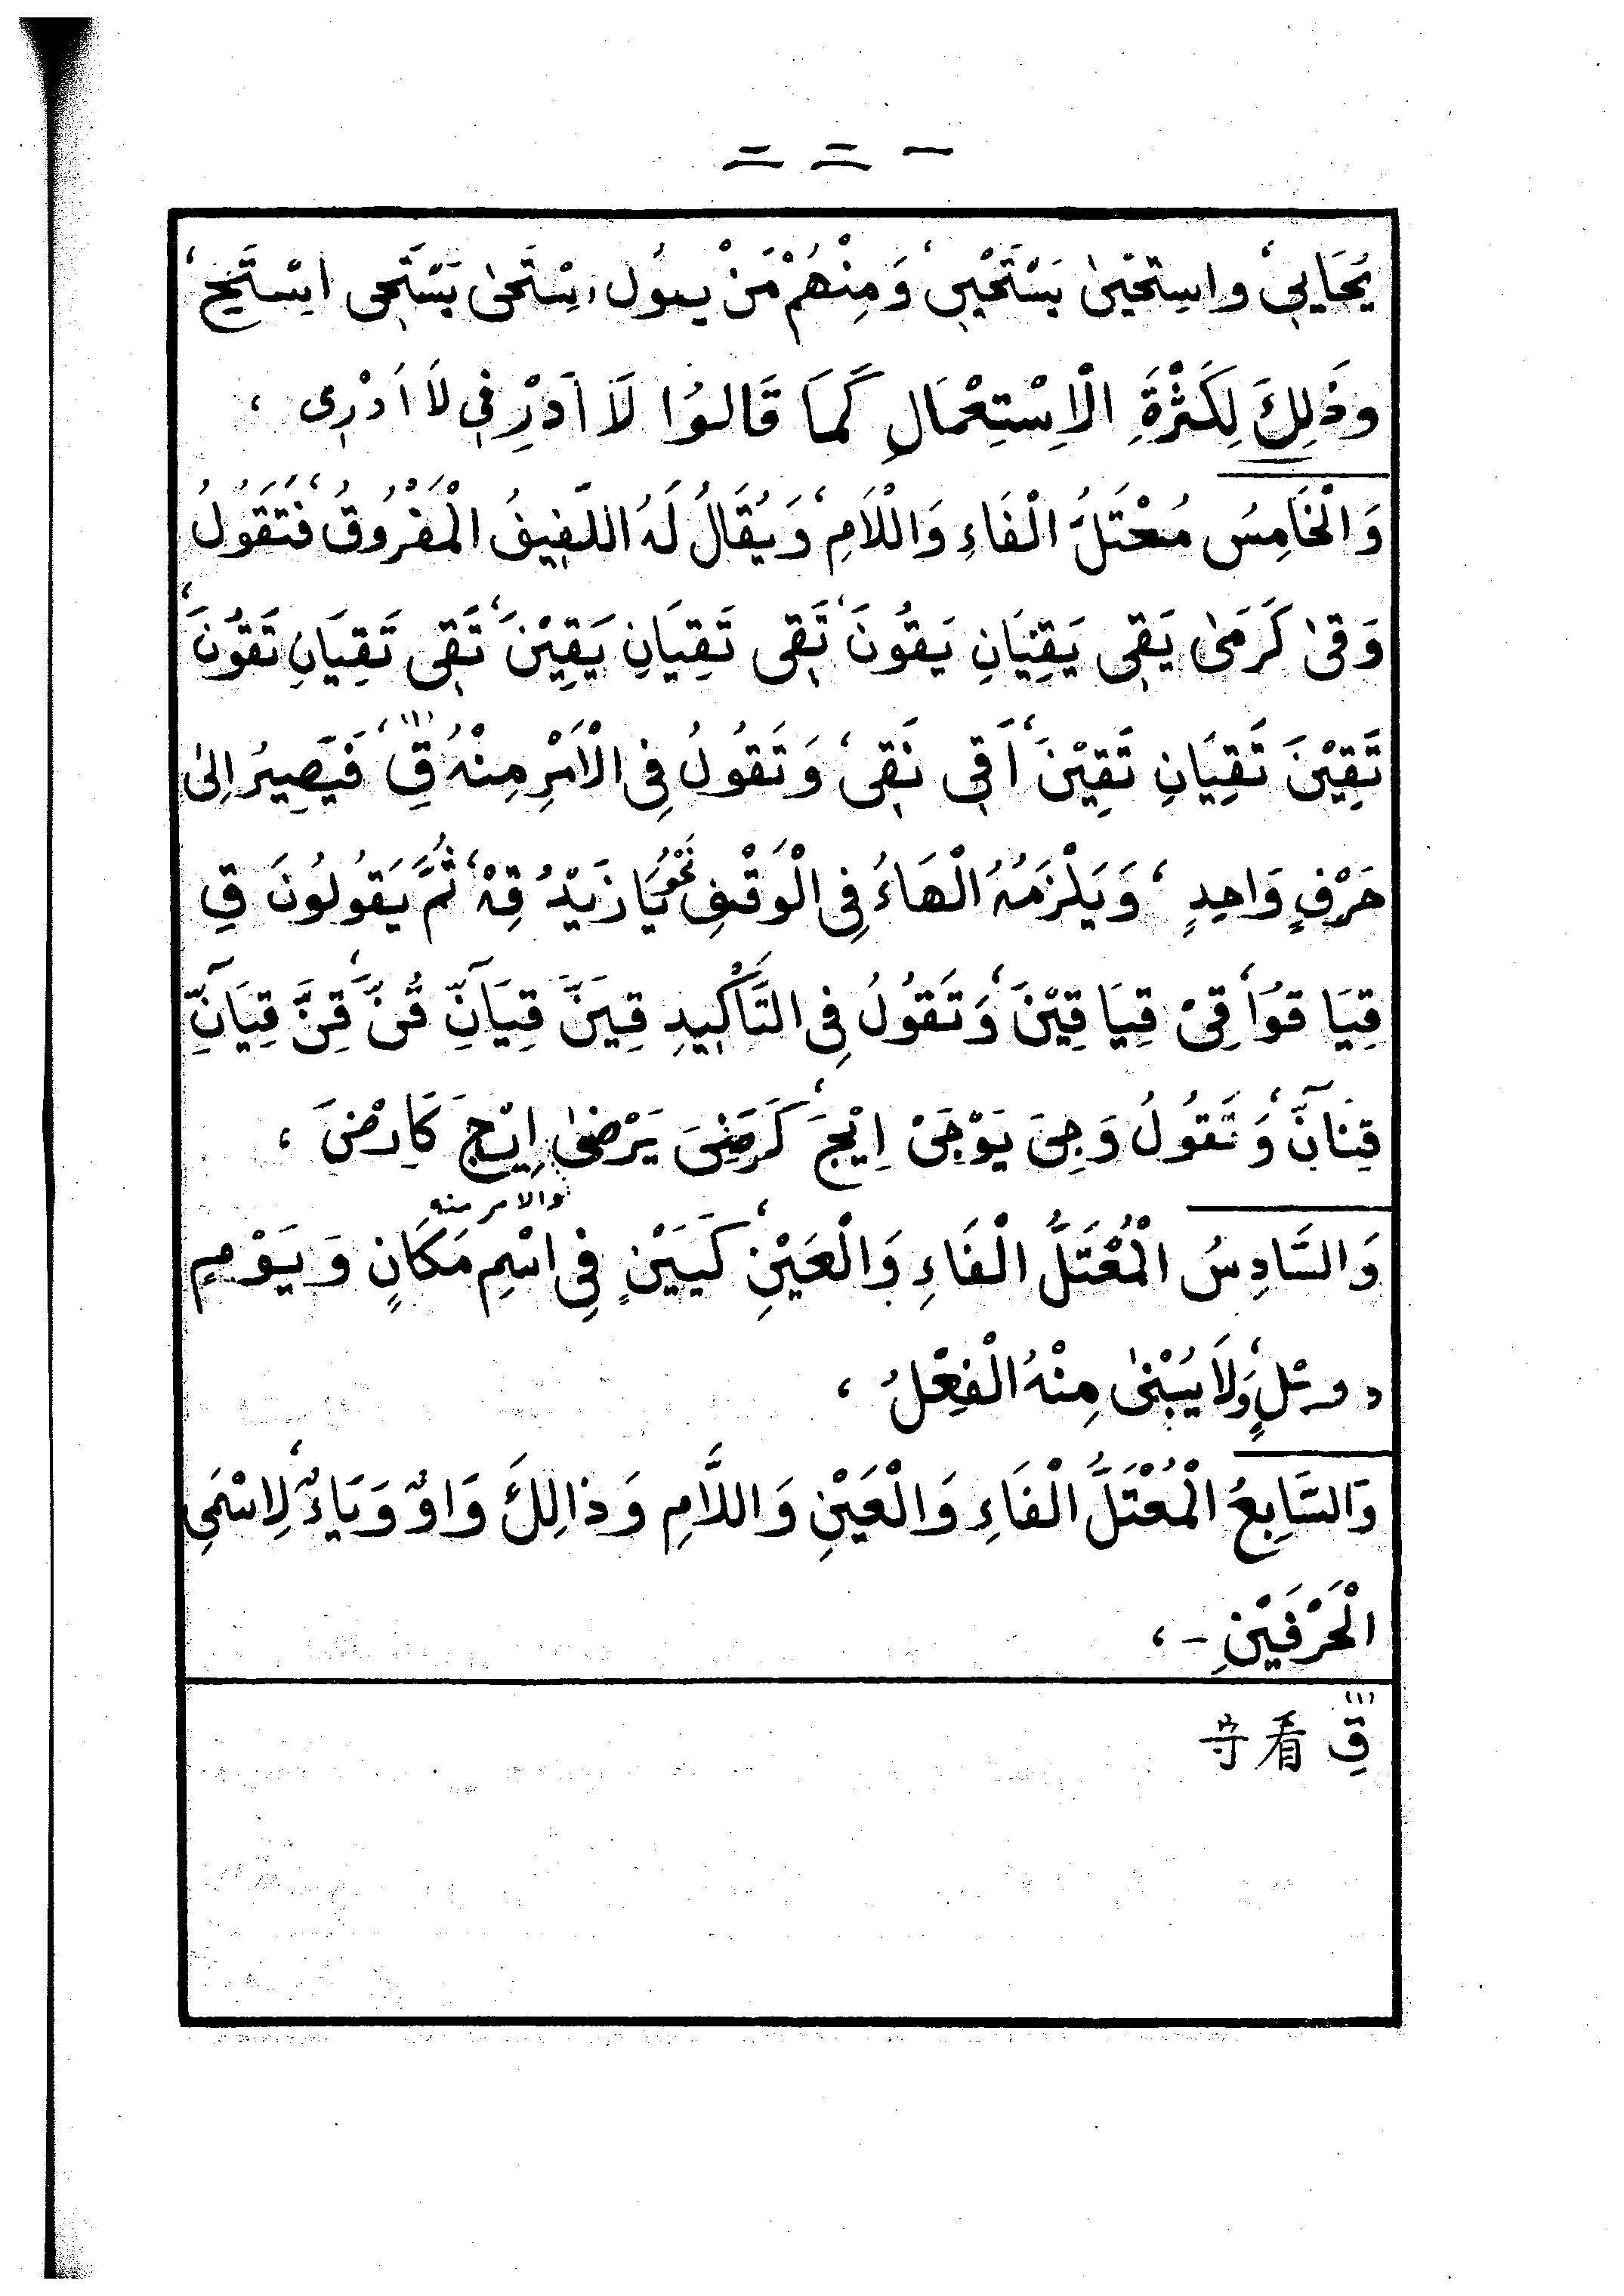 二 二 一
يُحَايِي، وَاسْتَحْيَىٰ يَسْتَحْيِي، وَمِنْهُمْ مَنْ يقول، اِسْتَحَىٰ يَسْتَحِى اِسْتَحِ،
وَذٰلِكَ لِكَثْرَةِ الْاِسْتِعْمَالِ كَمَا قَالُوا لَا اَدْرِ فِي لَا اَدْرِى ،
وَالْخَامِسُ مُعْتَلُّ الْفَاءِ وَاللَّامِ، وَيُقَالُ لَهُ اللَّفِيفُ الْمَفْرُوقُ، فَتَقُولُ
وَقَىٰ كَرَمَىٰ يَقِى يَقِيَانِ يَقُونَ، تَقِى تَقِيَانِ يَقِيْنَ، تَقِى تَقِيَانِ تَقُونَ،
تَقِيْنَ تَقِيَانِ تَقِيْنَ، اَقِى نَقِى، وَتَقُولُ فِى الْاَمْرِ مِنْهُ قِ، فَيَصِيرُ اِلىٰ
حَرْفٍ وَاحِدٍ ، وَيَلْزَمُهُ الْهَاءُ فِى الْوَقْفِ نَحْوُ يَا زَيْدُ قِهْ، ثُمَّ يَقُولُونَ قِ
قِيَا قُوا، قِىْ قِيَا قِيْنَ، وَتَقُولُ فِى التَّاْكِيدِ قِيَنَّ قِيَآنِّ قُنَّ، قِنَّ قِيَآنِّ
قِنَآنِّ، وَتَقُولُ وَجِىَ يَوْجَىْ اِيْجَ، كَرَضِىَ يَرْضىٰ اِيْجَ كَارْضَ ،
والامر منه
وَالسَّادِسُ الْمُعْتَلُّ الْفَاءِ وَالْعَيْنِ، كَيَيْنٍ فِى اسْمِ مَكَانٍ وَيَوْمٍ
وَوَيْلٍ، وَلَا يُبْنىٰ مِنْهُ الْفِعْلُ ،
وَالسَّابِعُ الْمُعْتَلُّ الْفَاءِ وَالْعَيْنِ وَاللَّامِ وَذَالِكَ وَاوٌ وَيَاءٌ، لِاسْمَىِ
الْحَرْفَيْنِ - ،
قِ 看守